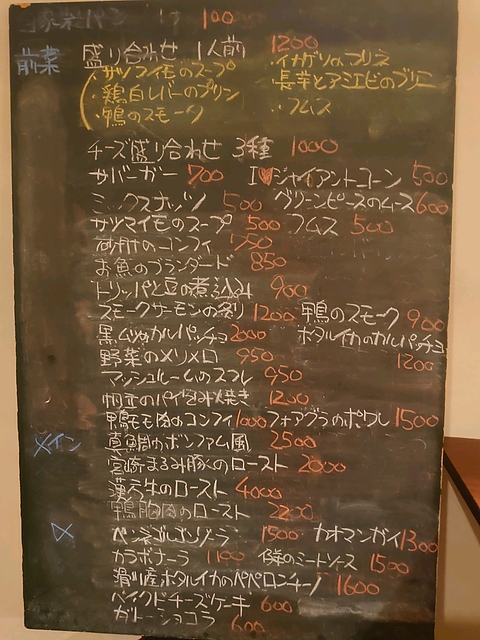 100
前菜 盛り合わせ 1人前 1200
・サツマイモのスープ ・イカゲソのフリネ
・鶏白レバーのプリン ・長芋とアミエビのブリニ
・鴨のスモーク ・フムス
チーズ盛り合わせ 3種 1000
サバーガー 700 I♥ジャイアントコーン 500
ミックスナッツ 500 グリーンピースのムース 600
サツマイモのスープ 500 フムス 500
砂肝のコンフィ 750
お魚のブランダード 850
トリッパと豆の煮込み 900
スモークサーモンの 1200 鴨のスモーク 900
黒ムツのカルパッチョ 2000 ホタルイカのカルパッチョ 1200
野菜のメリメロ 950
マッシュルームのスフレ 950
帆立のパイ包み焼き 1200
鴨モモ肉のコンフィ 1000 フォアグラのポワレ 1500
メイン 真鯛のボンファム風 2500
宮崎まるみ豚のロースト 2000
漢方牛のロースト 4000
鴨胸肉のロースト 2200
〆 ペンネゴルゴンゾーラ 1500 カオマンガイ 1300
カルボナーラ 1100 のミートソース 1500
滑川産ホタルイカのペペロンチーノ 1600
ベイクドチーズケーキ 600
ガトーショコラ 600